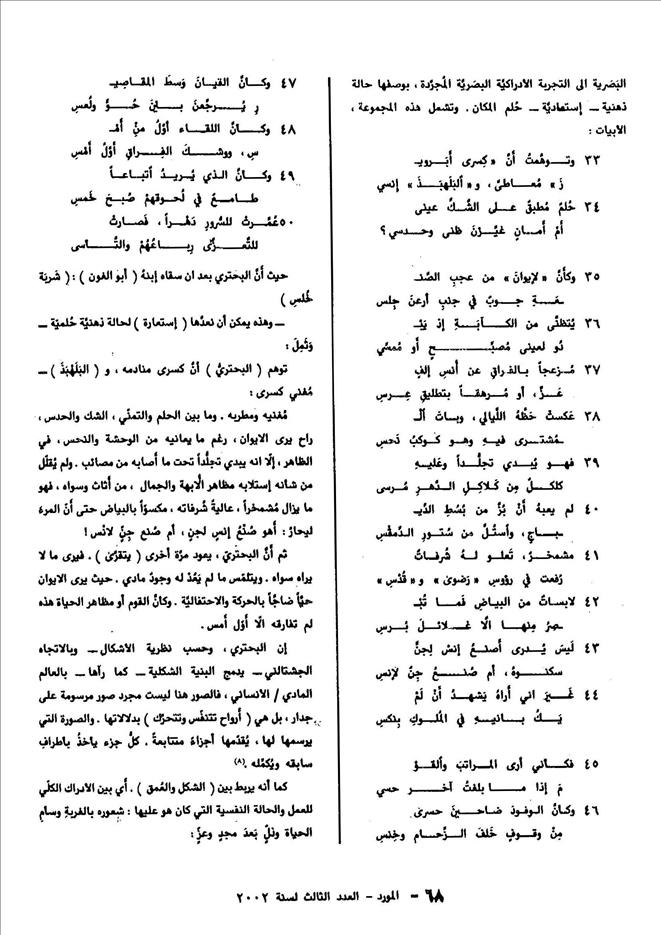 البَصَرية الى التجربة الأدراكيّة البصَريَّة المُجرَّدة ، بوصفها حالة
ذهنية – إستعاديَّة – حُلم المكان . وتشمل هذه المجموعة ،
الأبيات :
٣٣ وتـوهَّمتُ أنَّ « كِسرى أَبَـرويـ
ـزَ » مُعـاطىَّ ، و « ألبَلَهبَـذَ » إنسي
٣٤ حُلمٌ مُطبقٌ عـلى الشَّـكِّ عينى
أمْ أمـانٍ غيَّـرْنَ ظنى وحـدسي ؟
٣٥ وكأنَّ « لإيوانَ » من عجبِ الصَّنـ
ـعَـةِ جـوبٌ في جنبِ أرعنَ جِلسِ
٣٦ يُتظنَّى من الكـآبَـةِ إذ يَبْـ
ـدُو لعينى مُصبِّـحٍ أو مُمسِّي
٣٧ مُـزعجاً بـالفراقِ عن أنسِ إلفٍ
عـزَّ ، أو مُـرهقـاً بتطليقِ عِـرسِ
٣٨ عَكستْ حَظَّهُ اللَّيالي ، وبـاتَ ألـ
ـمُشتـرى فيـهِ وهـو كـوكبُ نَحسِ
٣٩ فهـو يُبـدي تجلُّـداً وعَليـهِ
كلكـلٌ مِن كَـلاكِـلِ الـدَّهـرِ مُـرسى
٤٠ لم يعبهُ أنْ بُزَّ من بُسُطِ الدِّيـ
ـبـاجِ ، وأستُلَّ من سُتـورِ الدَّمقْسِ
٤١ مشمخرٌ ، تَعلـو لـهُ شُرفـاتٌ
رُفعت في رؤوسِ « رَضوىَ » و « قُدْسِ »
٤٢ لابسـاتٌ من البيـاضِ فَمـا تُبْـ
ـصِرُ مِنهـا الّا غـلائـلَ بُـرسِ
٤٣ لَيسَ يُـدرى أصنـعُ إنسٍ لِجنٍّ
سكنـوهُ ، أم صُنـعُ جنٍّ لأنسِ
٤٤ غَـيرَ اني أراهُ يَشهـدُ أنْ لَمْ
يَـكُ بـانيـهِ في المُلـوكِ بِنكسِ
٤٥ فكـأني أرى المـراتبَ والقـوْ
مَ إذا مـا بلغتُ آخـر حسي
٤٦ وكـأنَّ الـوفـودَ ضـاحـينَ حسرى
مِنْ وقـوفٍ خَلفَ الـزَّحـامِ وخِنسِ
٤٧ وكـأنَّ القيـانَ وَسطَ المقـاصيـ
ـرِ يُـرجِّعنَ بـينَ حُـوٍّ ولُعسِ
٤٨ وكـأنَّ اللقـاء أوَّلُ منْ أمْـ
ـسِ ، ووشـكَ الفِـراقِ أوَّلَ أمْسِ
٤٩ وكـأنَّ الـذي يُـريـدُ أتبـاعـاً
طـامـعٌ في لُحـوقهمْ صُبـحَ خَمسِ
٥٠ عُمِّـرتْ للسُّرورِ دَهـراً ، فَصـارتْ
للتَّعـزِّى رِبـاعُهُمْ والتَّـأسى
حيث أنَّ البحتري بعد ان سقاه إبنهُ ( أبو الغوث ) : ( شَربَة
خُلسِ )
– وهذه يمكن أن نعدّها ( إستعارة ) لحالة ذهنيَّة حلميَّة –
وَثَمِلَ :
توهم ( البحتريُّ ) أنَّ كسرى منادمه ، و ( البَلَهْبَذَ ) –
مُغني كسرى :
مُغنيه ومطربه . وما بين الحلم والتمنّي ، الشك والحدس ،
راح يرى الايوان ، رغم ما يعانيه من الوحشة والنحس ، في
الظاهر ، إلّا انه يبدي تجلُّداً تحت ما أصابه من مصائب . ولم يُقلِّل
من شانه إستلابه مظاهر الأبهة والجمال ، من أثاث وسواه ، فهو
ما يزال مُشمخراً ، عالية شُرفاته ، مكسوّاً بالبياض حتى أنَّ المرءَ
ليحارُ : أهو صُنْعُ إنسٍ لجن ، أم صُنع جنٍّ لانْس !
ثم أنَّ البحتريَّ ، يعود مرّة أخرى ( يتقرّى ) . فيرى ما لا
يراه سواه . ويتلمّس ما لم يَعُدْ له وجودٌ مادي . حيث يرى الايوان
حيّاً ضاجّاً بالحركة والاحتفاليّة . وكأنَّ القوم أو مظاهر الحياة هذه
لم تفارقه الّا أوّل أمس .
إن البحتري ، وحسب نظرية الأشكال – وبالاتجاه
الجشتالتي – يدمج البنية الشكلية – كما رآها – بالعالم
المادي / الانساني ، فالصور هنا ليست مجرد صور مرسومة على
جدار ، بل هي ( أرواح تتنفّس وتتحرَّك ) بدلالاتها . والصورة التي
يرسمها لها ، يُقدِّمها أجزاءً متتابعةً . كلُّ جزء يأخذُ بأطرافِ
سابقه ويُكمِّله . (٨)
كما أنه يربط بين ( الشكل والعُمق ) . أي بين الأدراك الكلّي
للعمل والحالة النفسية التي كان هو عليها : شعوره بالغربة وسأم
الحياة وذلٍّ بَعدَ مجدٍ وعزٍّ :
٦٨ – المورد – العدد الثالث لسنة ٢٠٠٢